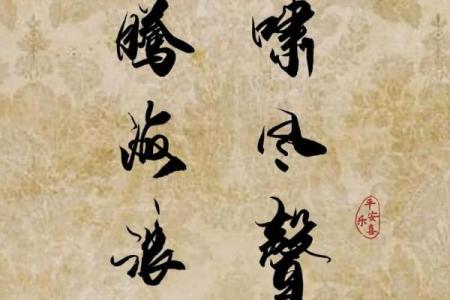 嘯风聲
騰海浪
平安喜乐